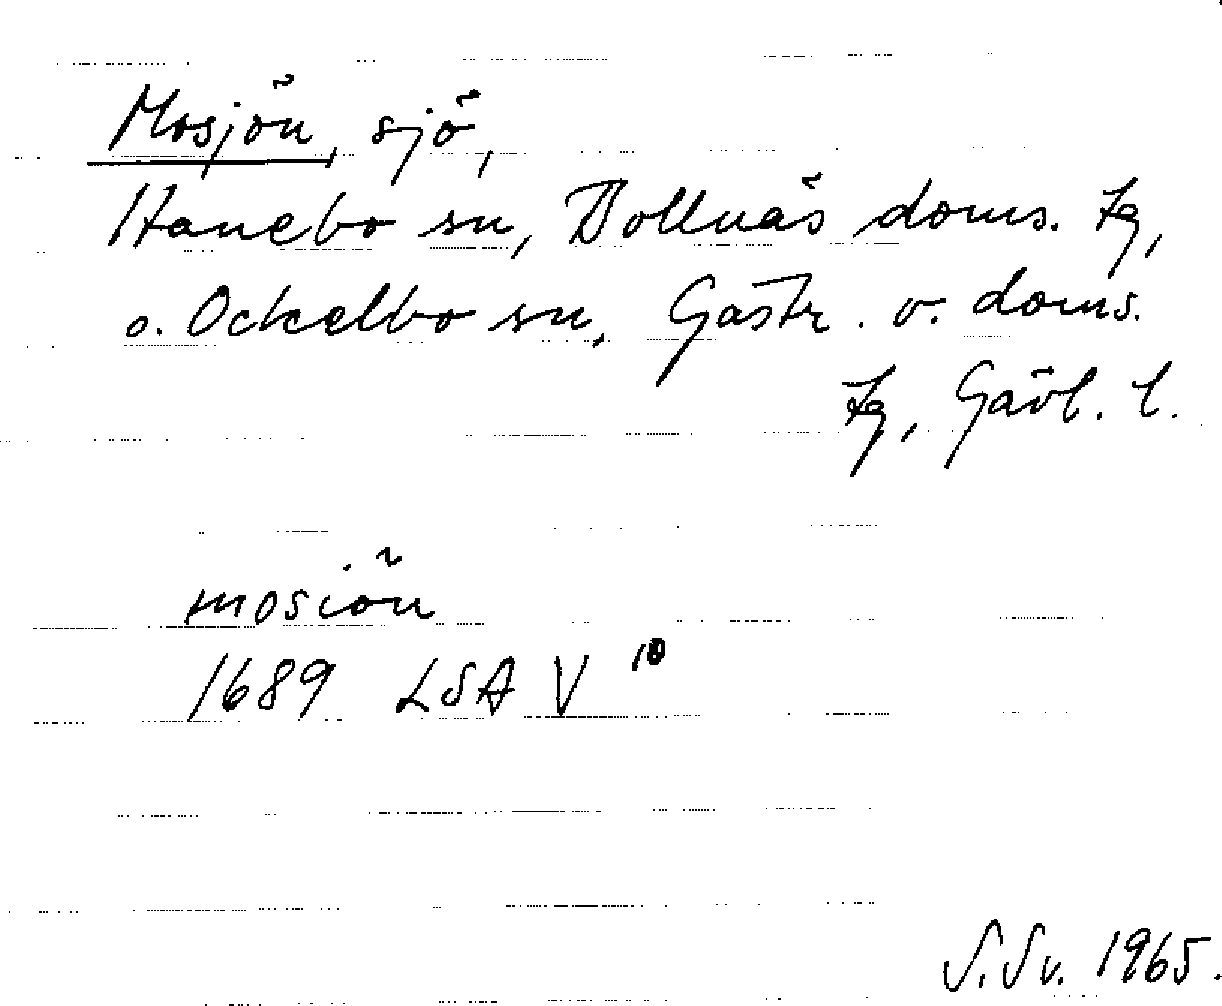 Mosjön, sjö,
Hanebo sn, Bollnäs doms. tg,
o. Ockelbo sn, Gästr. v. doms.
tg, Gävl. l.
mosiön
1689 LSA V 10
S. Sv. 1965.